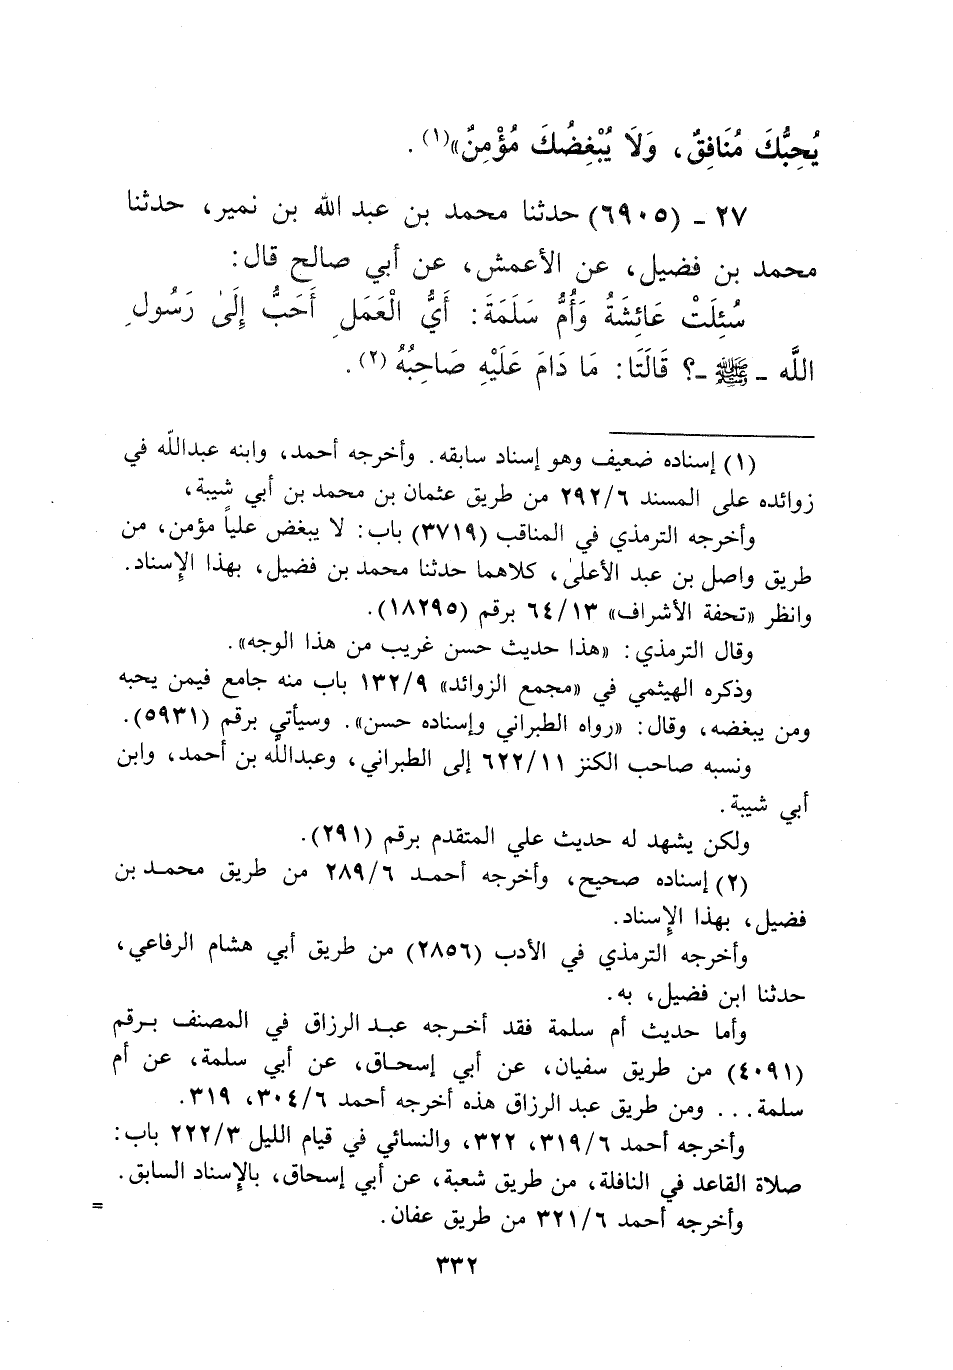 يُحِبُّكَ مُنَافِقٌ، وَلَا يُبْغِضُكَ مُؤْمِنٌ»(١).
٢٧ ـ (٦٩٠٥) حدثنا محمد بن عبد الله بن نمير، حدثنا
محمد بن فضيل، عن الأعمش، عن أبي صالح قال:
سُئِلَتْ عَائِشَةُ وَأُمُّ سَلَمَةَ: أَيُّ الْعَمَلِ أَحَبُّ إِلَىٰ رَسُولِ
اللَّه ـ ﷺ ـ؟ قَالَتَا: مَا دَامَ عَلَيْهِ صَاحِبُهُ (٢).
(١) إسناده ضعيف وهو إسناد سابقه. وأخرجه أحمد، وابنه عبدالله في
زوائده على المسند ٢٩٢/٦ من طريق عثمان بن محمد بن أبي شيبة،
وأخرجه الترمذي في المناقب (٣٧١٩) باب: لا يبغض علياً مؤمن، من
طريق واصل بن عبد الأعلىٰ، كلاهما حدثنا محمد بن فضيل، بهذا الإسناد.
وانظر «تحفة الأشراف» ٦٤/١٣ برقم (١٨٢٩٥).
وقال الترمذي: «هذا حديث حسن غريب من هذا الوجه».
وذكره الهيثمي في «مجمع الزوائد» ١٣٢/٩ باب منه جامع فيمن يحبه
ومن يبغضه، وقال: «رواه الطبراني وإسناده حسن». وسيأتي برقم (٥٩٣١).
ونسبه صاحب الكنز ٦٢٢/١١ إلى الطبراني، وعبدالله بن أحمد، وابن
أبي شيبة.
ولكن يشهد له حديث علي المتقدم برقم (٢٩١).
(٢) إسناده صحيح، وأخرجه أحمد ٢٨٩/٦ من طريق محمد بن
فضيل، بهذا الإسناد.
وأخرجه الترمذي في الأدب (٢٨٥٦) من طريق أبي هشام الرفاعي،
حدثنا ابن فضيل، به.
وأما حديث أم سلمة فقد أخرجه عبد الرزاق في المصنف برقم
(٤٠٩١) من طريق سفيان، عن أبي إسحاق، عن أبي سلمة، عن أم
سلمة... ومن طريق عبد الرزاق هذه أخرجه أحمد ٣٠٤/٦، ٣١٩.
وأخرجه أحمد ٣١٩/٦، ٣٢٢، والنسائي في قيام الليل ٢٢٢/٣ باب:
صلاة القاعد في النافلة، من طريق شعبة، عن أبي إسحاق، بالإسناد السابق.
وأخرجه أحمد ٣٢١/٦ من طريق عفان.
=
٣٣٢